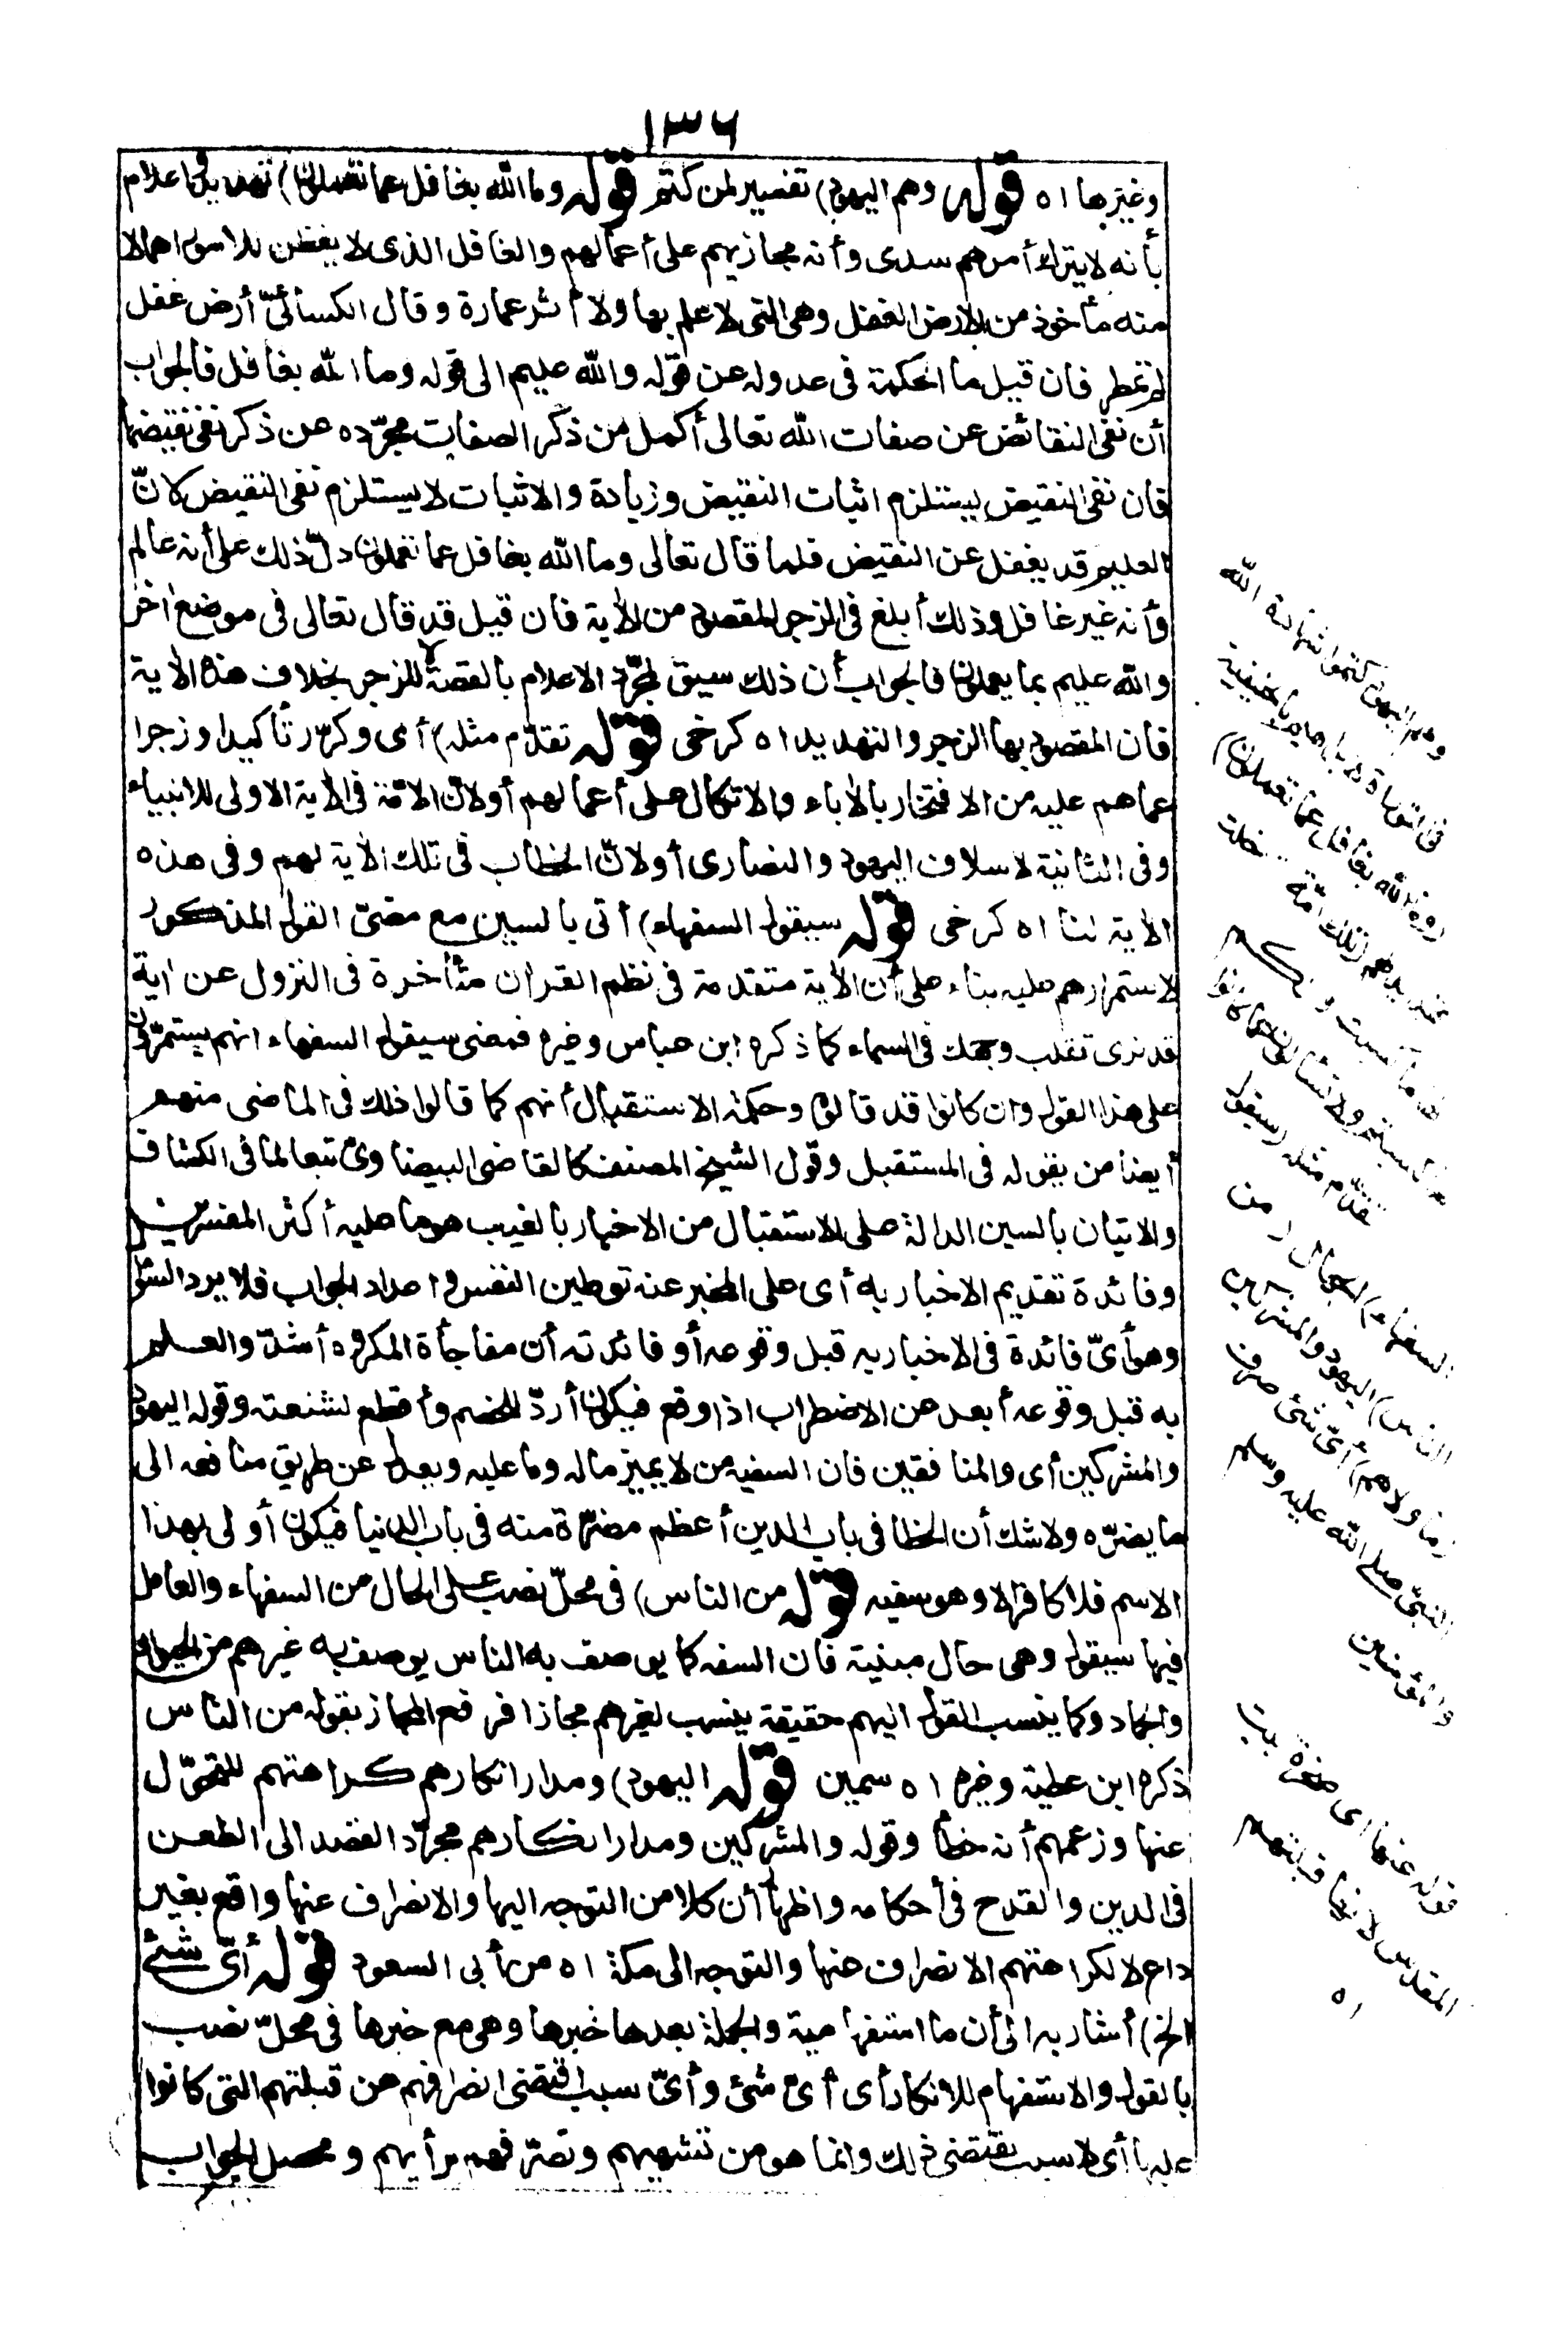 ١٣٦
وغيرها ا ه قوله وهم اليهود) تفسير لمن كتم قوله وما الله بغافل عما تعملون) تهديد واعلام
بأنه لا يترك أمرهم سدى وأنه مجازيهم على أعمالهم والغافل الذى لا يفطن للامور اهمالا
منه مأخوذ من الارض الغفل وهى التى لا علم بها ولا أثر عمارة وقال الكسائىّ أرض غفل
لم تمطر فان قيل ما الحكمة فى عدوله عن قوله والله عليم الى قوله وما الله بغافل فالجواب
أن نفى النقائض عن صفات الله تعالى أكمل من ذكر الصفات مجرّده عن ذكر نفى نقيضها
فان نفى النقيض يستلزم اثبات النقيض وزيادة والاثبات لا يستلزم نفى النقيض لانّ
العليم قد يغفل عن النقيض فلما قال تعالى وما الله بغافل عما تعملون دلّ ذلك على أنه عالم
وأنه غير غافل وذلك أبلغ فى الزجر المقصود من الآية فان قيل قد قال تعالى فى موضع آخر
والله عليم بما يعملون فالجواب أن ذلك سيق لمجرّد الاعلام بالقصة لا للزجر بخلاف هذه الآية
فان المقصود بها الزجر والتهديد ا ه كرخى قوله تقدّم مثله) أى وكرّر تأكيدا وزجرا
عما هم عليه من الافتخار بالآباء والاتكال على أعمالهم أو لانّ الامّة فى الآية الاولى للانبياء
وفى الثانية لاسلاف اليهود والنصارى أو لانّ الخطاب فى تلك الآية لهم وفى هذه
الآية لنا ا ه كرخى قوله سيقول السفهاء) أتى بالسين مع مضىّ القول المذكور
لاستمرارهم عليه بناء على أن الآية متقدمة فى نظم القرآن متأخرة فى النزول عن آية
قد نرى تقلب وجهك فى السماء كما ذكره ابن عباس وغيره فمعنى سيقول السفهاء انهم يستمرّون
على هذا القول وان كانوا قد قالوه وحكمة الاستقبال أنهم كما قالوا ذلك فى الماضى منهم
أيضا من يقوله فى المستقبل وقول الشيخ المصنف كالقاضى البيضاوى تبعا لما فى الكشاف
والاتيان بالسين الدالة على الاستقبال من الاخبار بالغيب هو ما عليه أكثر المفسرين
وفائدة تقديم الاخبار به أى على المخبر عنه توطين النفس واعداد الجواب فلا يرد السؤال
وهو أىّ فائدة فى الاخبار به قبل وقوعه أو فائدته أن مفاجأة المكروه أشدّ والعلم
به قبل وقوعه أبعد من الاضطراب اذا وقع فيكون أردّ للخصم وأقطع لشنعته وقوله اليهود
والمشركين أى والمنافقين فان السفيه من لا يميز ماله وما عليه ويعدل عن طريق منافعه الى
ما يضرّه ولا شك أن الخطا فى باب الدين أعظم مضرّة منه فى باب الدنيا فيكون أولى بهذا
الاسم فلا كافر الا وهو سفيه قوله من الناس) فى محلّ نصب على الحال من السفهاء والعامل
فيها سيقول وهى حال مبنية فان السفه كما يوصف به الناس يوصف به غيرهم من الحيوان
والجماد وكما ينسب القول اليهم حقيقة ينسب لغيرهم مجازا فرفع المجاز بقوله من الناس
ذكره ابن عطية وغيره ا ه سمين قوله اليهود) ومدار انكارهم كراهتهم للتحوّل
عنها وزعمهم أنه خطأ وقوله والمشركين ومدار انكارهم مجرّد القصد الى الطعن
فى الدين والقدح فى أحكامه واظهار أن كلا من التوجه اليها والانصراف عنها واقع بغير
داع لا لكراهتهم الانصراف عنها والتوجه الى مكة ا ه من أبى السعود قوله أىّ شئ
الخ) أشار به الى أن ما استفهامية والجملة بعدها خبرها وهى مع خبرها فى محلّ نصب
بالقول والاستفهام للانكار أى أىّ شئ وأىّ سبب اقتضى انصرافهم عن قبلتهم التى كانوا
عليها أى لا سبب يقتضى ذلك وانما هو من تشهيهم وتصرّفهم برأيهم ومحصل الجواب
وهم اليهود كتموا شهادة الله
فى التوراة لابراهيم بالحنيفية
(وما الله بغافل عما تعملون)
تهديد لهم (تلك امّة قد خلت
لها ما كسبت ولكم
ما كسبتم ولا تسألون عما كانوا
تقدّم مثله (سيقول
السفهاء) الجهال (من
الناس) اليهود والمشركين
(ما ولاهم) أىّ شئ صرف
النبىّ صلى الله عليه وسلم
والمؤمنين
قوله عنها اى صخرة بيت
المقدس لانها قبلتهم
ا ه